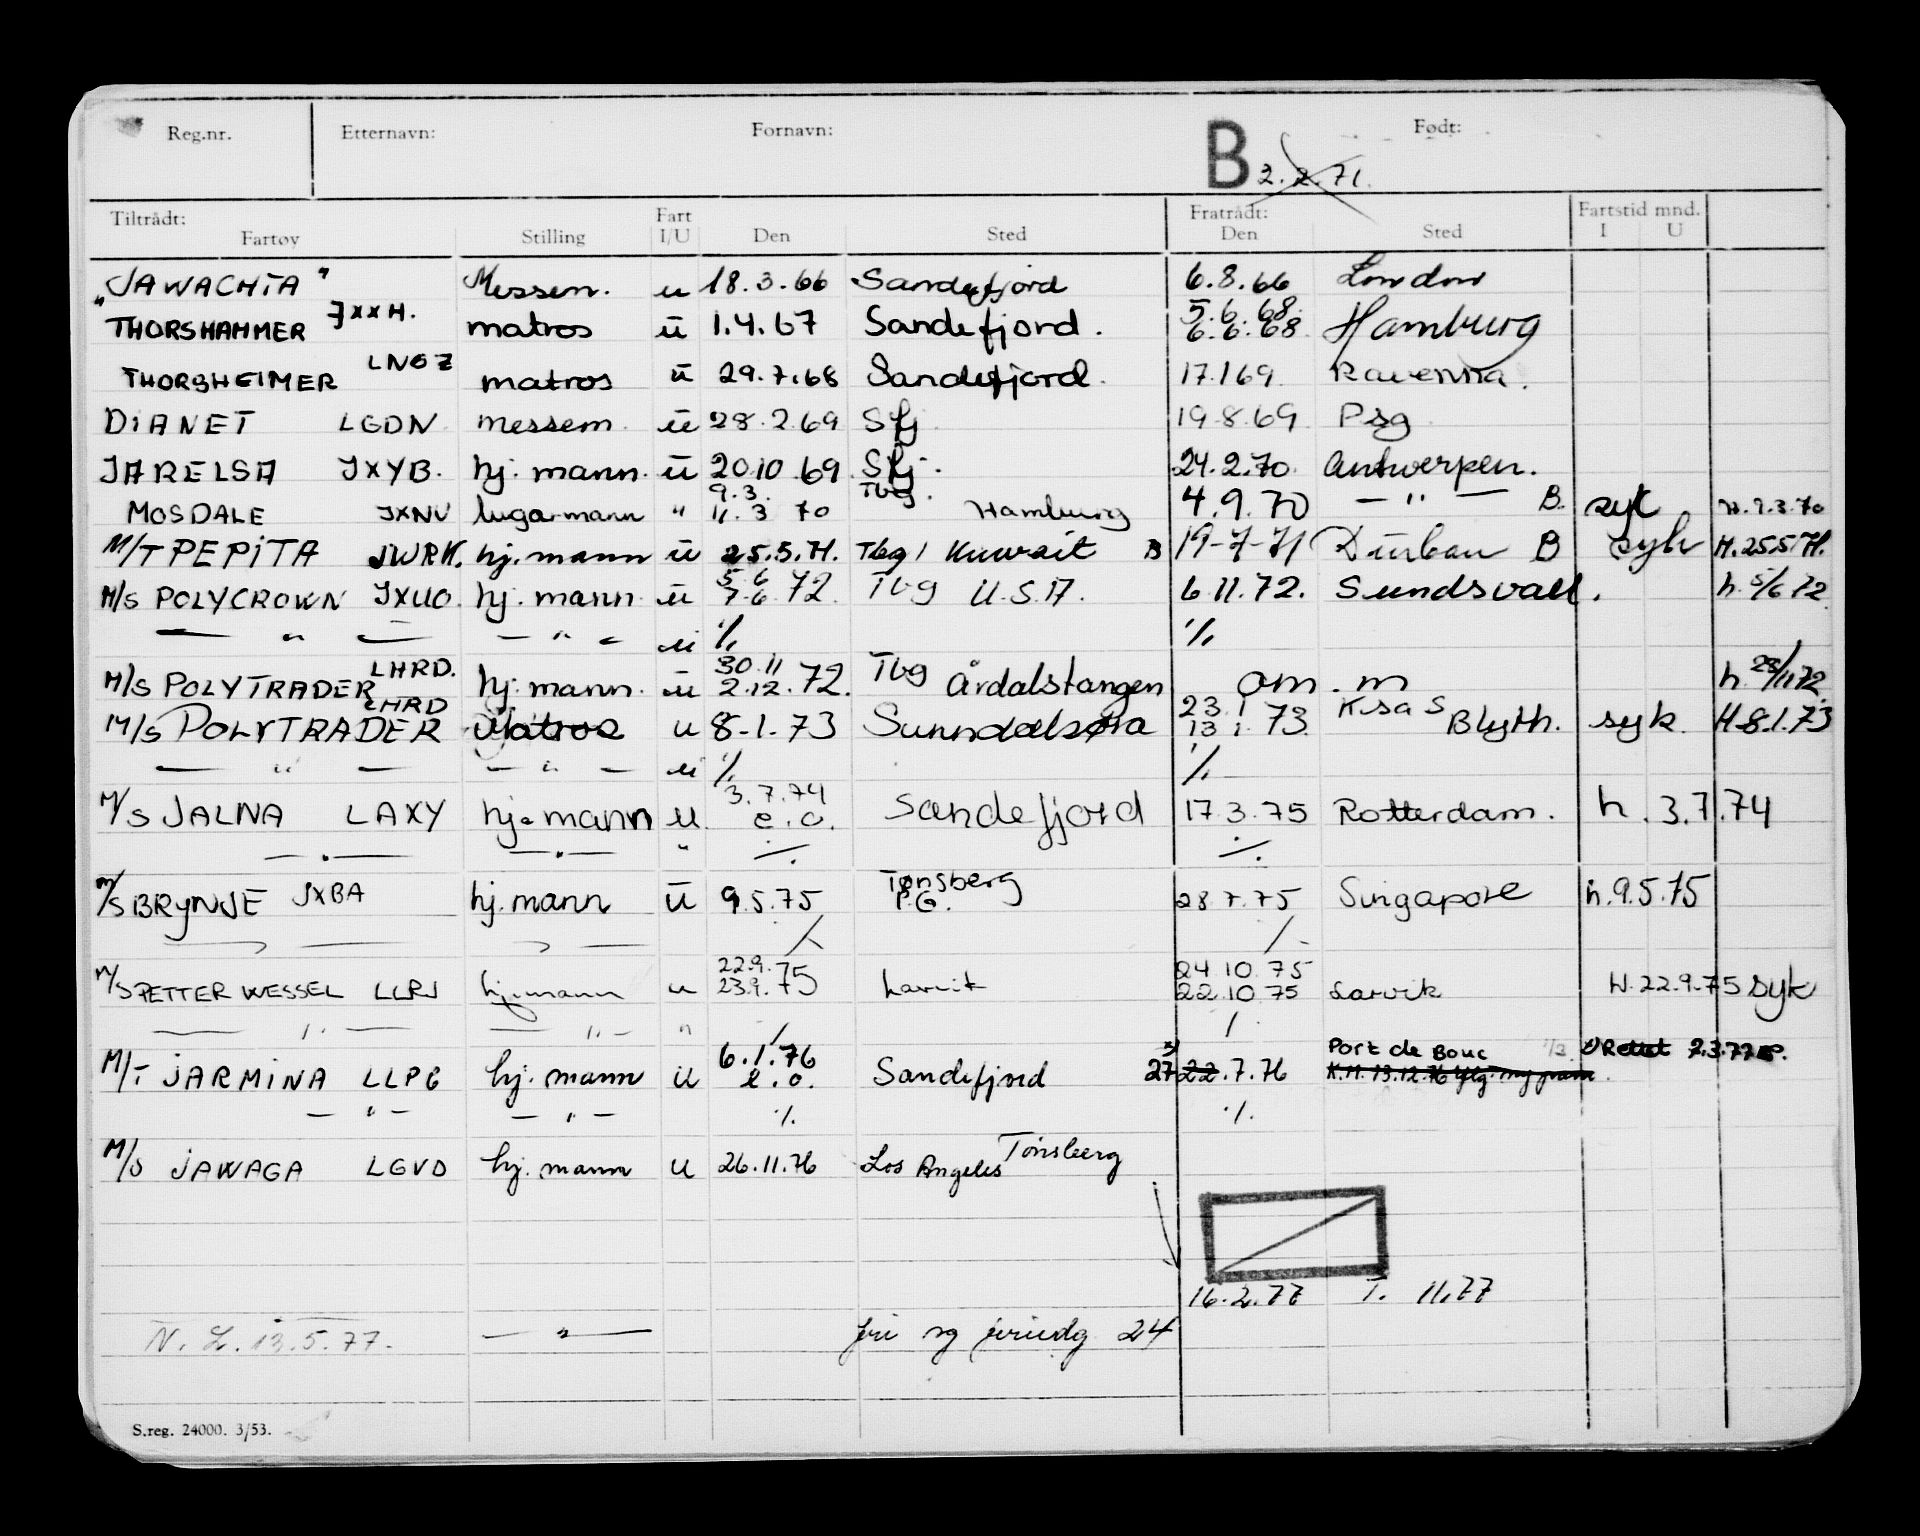 Reg.nr. Etternavn: Fornavn: B 2.2.71. Født:
Tiltrådt: Fart Fratrådt: Fartstid mnd.
Fartøy Stilling I/U Den Sted Den Sted I U
"JAWACHTA" Messem. u 18.3.66 Sandefjord 6.8.66 London
THORSHAMMER JXXH. matros ū 1.4.67 Sandefjord. 5.6.68. 6.6.68 Hamburg
THORSHEIMER matros ū 29.7.68 Sandefjord. 17.1 69. Ravenna.
DIANET LGDN messem. ū 28.2.69 Sfj. 19.8.69 Psg
JARELSA JXYB. hj. mann. ū 20.10.69. Sfj. 24.2.70. Antwerpen.
MOSDALE JXNV lugarmann " 9.3. 11.3 70 Tbg. Hamburg 4.9.70 — " — B. syk H.9.3.70
M/T PEPITA JWRK. hj. mann ū 25.5.71. Tbg/ Kuwait B 19-7-71 Durban B syk H.25.5.71.
M/S POLYCROWN JXUO. hj. mann. ū 5.6 7-6 72. Tbg U.S.A. 6.11.72. Sundsvall. h. 5/6 72
— " — — " — u ·/. ·/.
M/S POLYTRADER LHRD. hj. mann. ū 30.11 2.12.72. Tbg Årdalstangen om. m h. 28/11 72.
M/S POLYTRADER LHRD Matros u 8-1.73 Sunndalsøra 23.1 13 1. 73. Blyth. syk. H.8.1.73
— " — — " — u ·/. ·/.
M/S JALNA LAXY hj. mann u. 3.7.74 e.o. Sandefjord 17.3.75 Rotterdam. h. 3.7.74
— " — — " — " ·/. ·/.
M/S BRYNJE JXBA hj. mann ū 9.5.75 Tønsberg P.G. 28.7.75 Singapore h.9.5.75
M/S PETTER WESSEL LLRJ hj.mann u 22.9. 23.9. 75 Larvik 24.10.75 22.10 75 Larvik H.22.9.75 syk
— " — — " — " / /
M/T JARMINA LLPG hj. mann u 6.1.76 e.o. Sandefjord 27 22.7.76 Port de Bouc Rettet 2.3.77
— " — — " — ·/. ·/.
M/S JAWAGA LGVD hj. mann u 26.11.76 Los Angeles Tønsberg
16.2.77 T. 11.77
N. L. 13.5.77. — " — fri og 24
S.reg. 24000. 3/53.